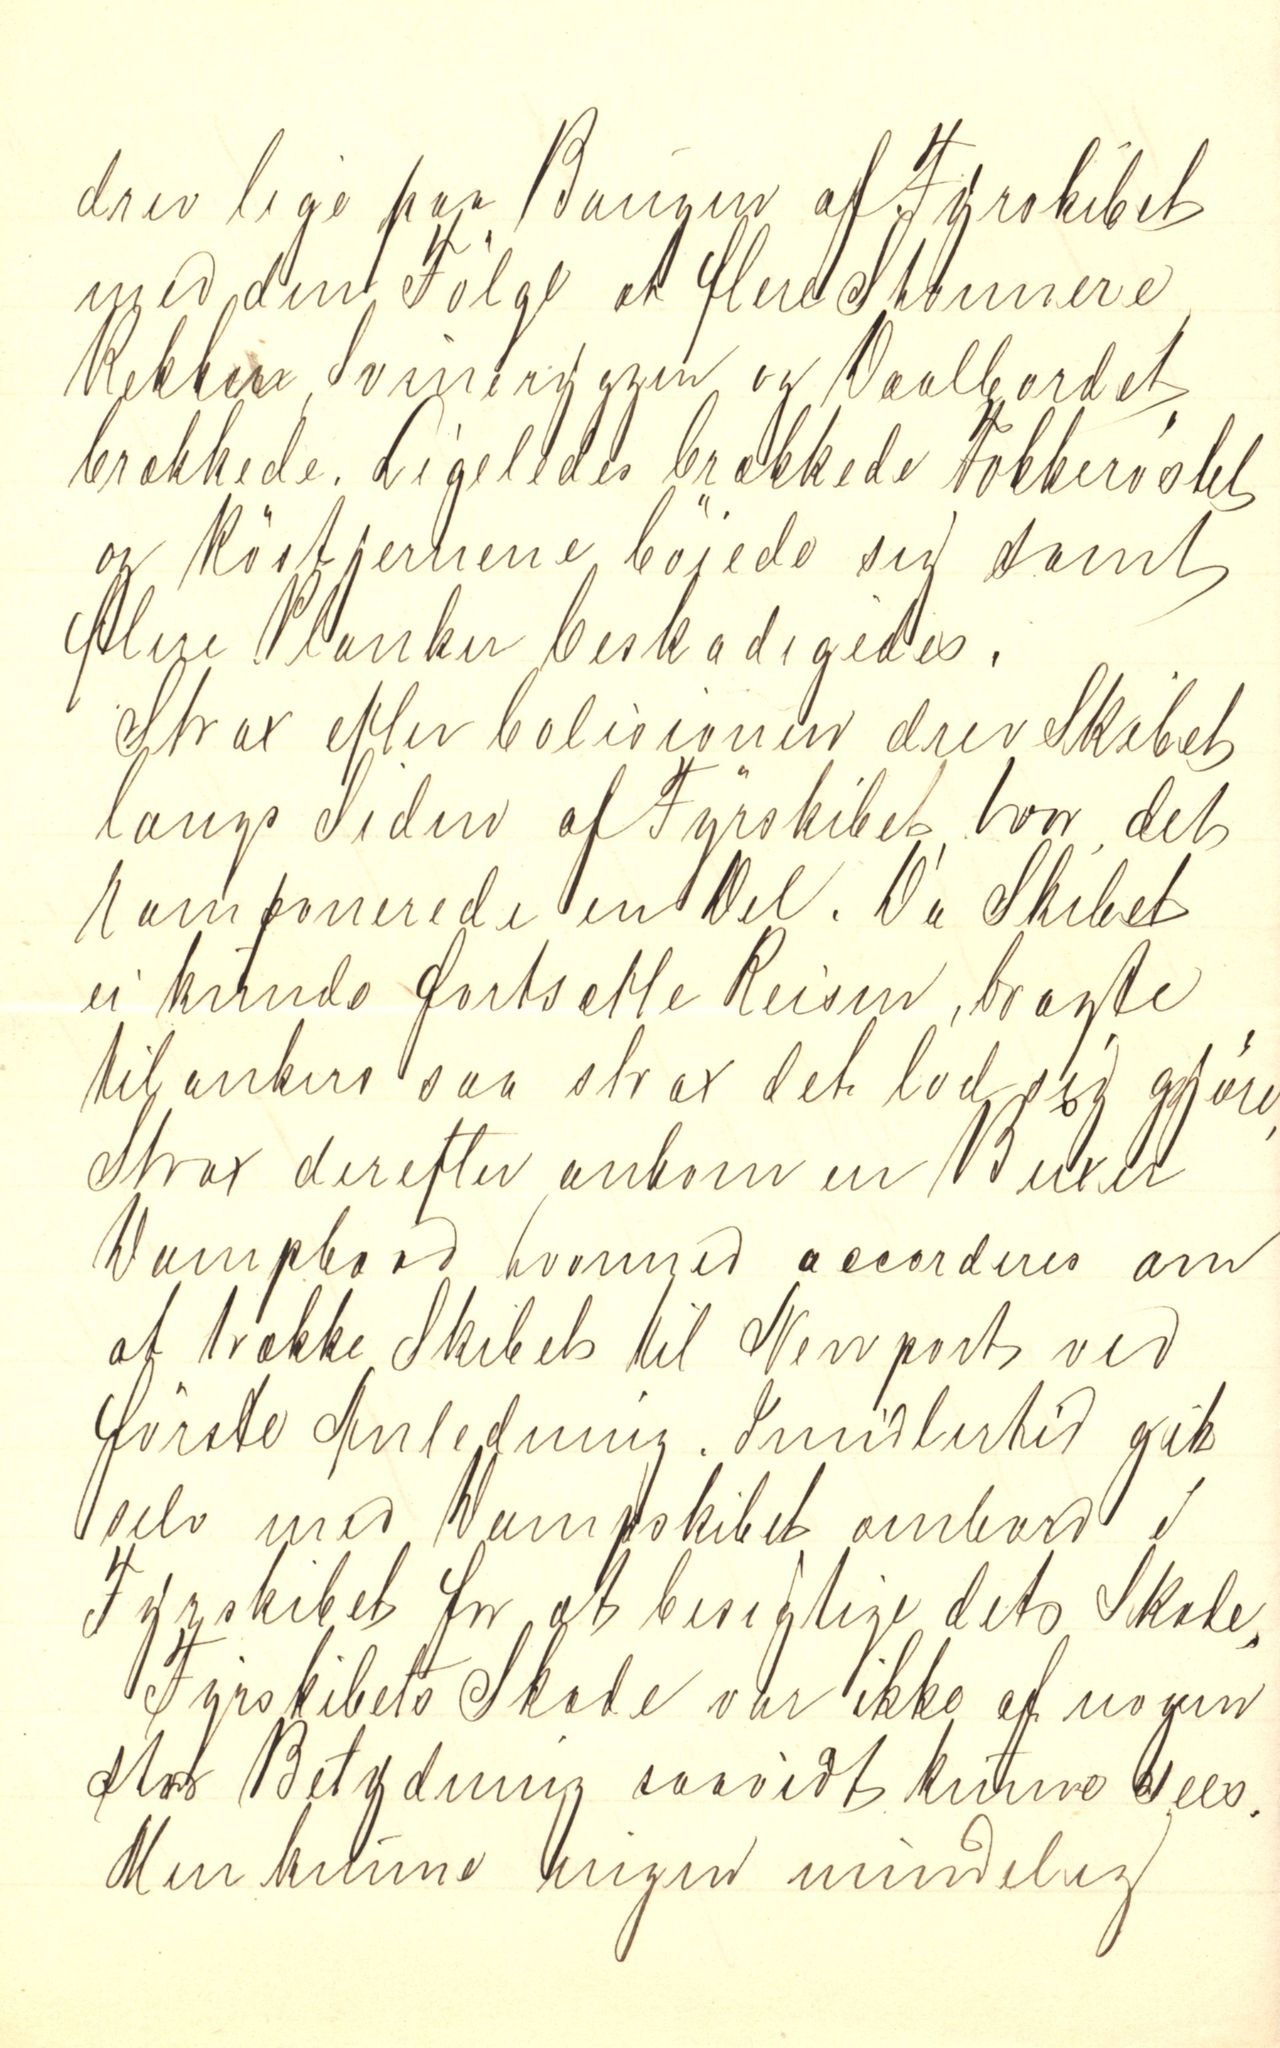 drev lige paa Baugen af Fyrskibet
med den Fölge at flere Stønnere
Rekken, Svineryggen og Daalbordet
brækkede. Ligeledes brækkede Fokkeröstet
og Röstjernene böiede sig samt
flere Planker beskadigedes.
Strax efter Colisionen drev Skibet
langs Siden af Fyrskibet hvor det
ramponerede en Del. Da Skibet
ei kunde fortsætte Reisen, bragte
til ankers saa strax det lod sig gjöre,
Strax derefter ankom en Buxer
Dampbaad hvormed accorderes om
at trække Skibet til Newport ved
förste Anledning. Imidlertid gik
selv med Dampskibet ombord i
Fyrskibet for at besigtige dets Skade.
Fyrskibets Skade var ikke af nogen
stor Betydning saavidt kunne sees.
Men kunne ingen mindelig